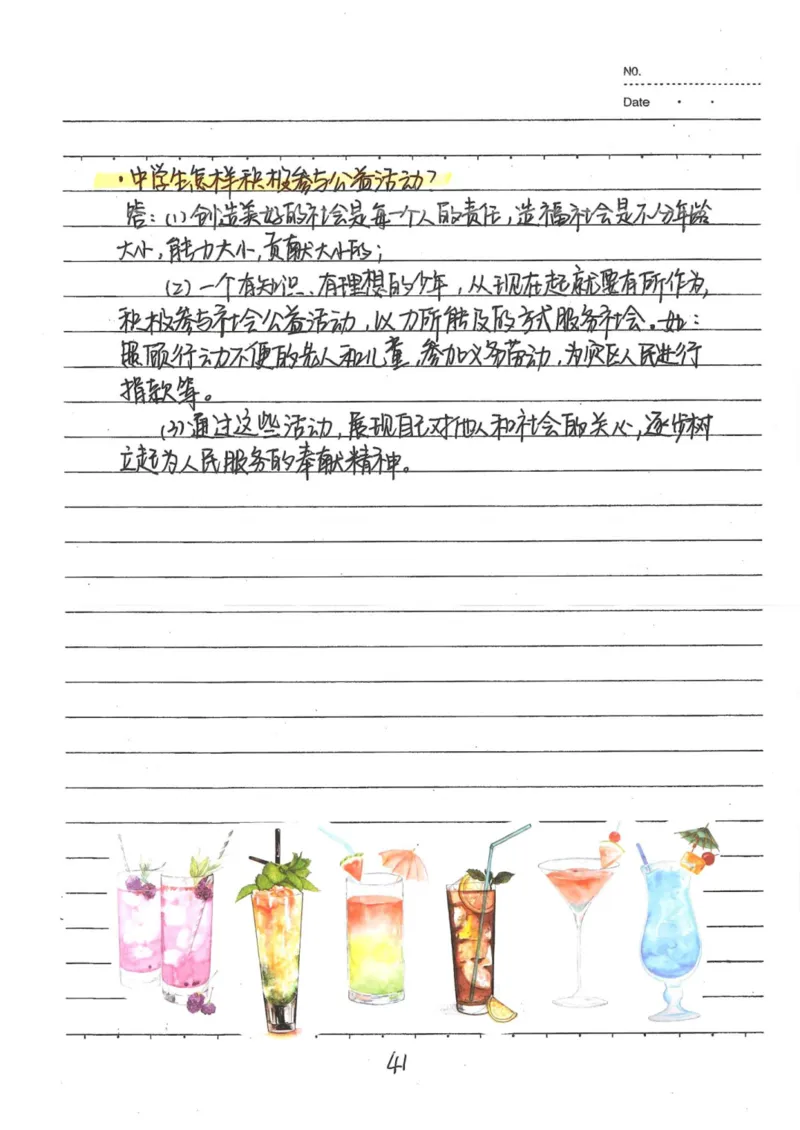 NO.
Date
·中学生怎样积极参与公益活动?
答:(1)创造美好的社会是每一个人的责任,造福社会是不分年龄
大小,能力大小,贡献大小的;
(2)一个有知识、有理想的少年,从现在起就要有所作为,
积极参与社会公益活动,以力所能及的方式服务社会。如:
照顾行动不便的老人和儿童,参加义务劳动,为灾区人民进行
捐款等。
(3)通过这些活动,展现自己对他人和社会的关心,逐步树
立起为人民服务的奉献精神。
41